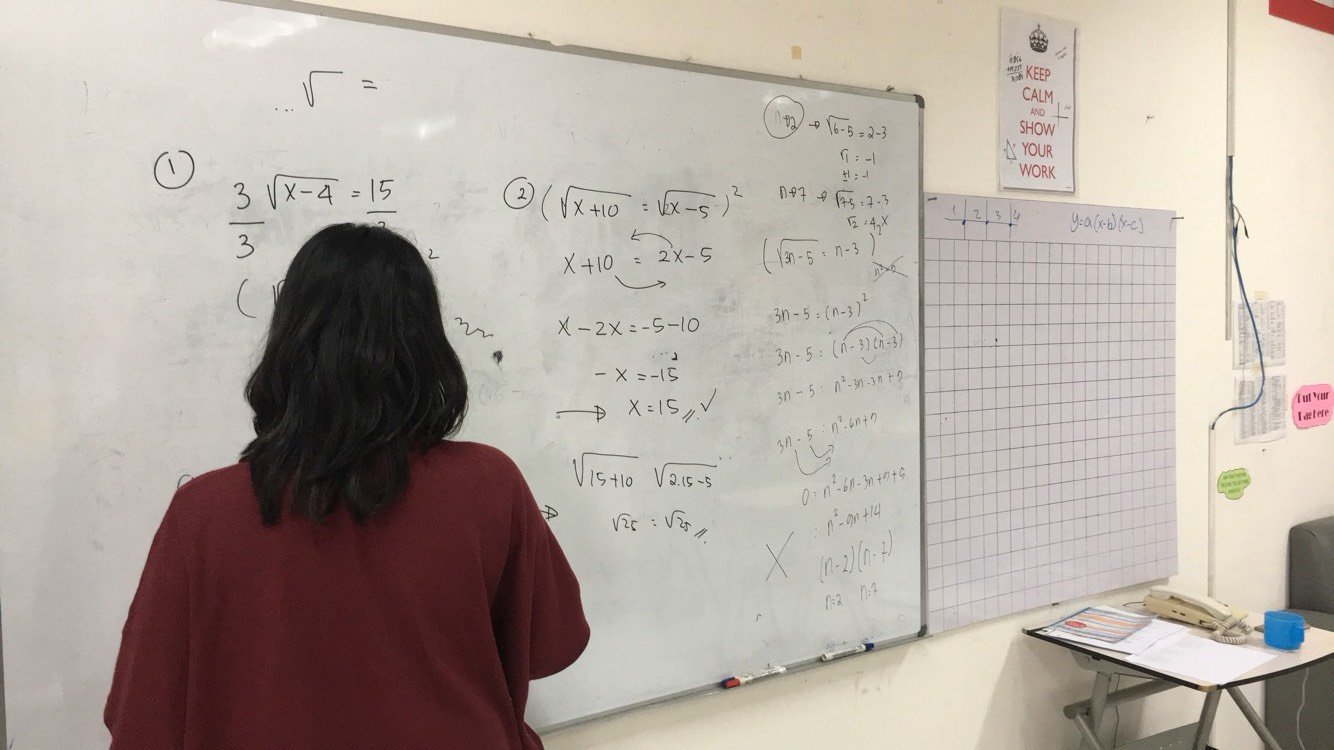 ...√ =
①
3√(x-4) = 15
3
(
2
② (√(x+10) = √(2x-5))²
x+10 = 2x-5
x-2x = -5-10
-x = -15
⇒ x = 15 // ✓
√(15+10) √(2.15-5)
√25 = √25 //
n→2 → √(6-5) = 2-3
√1 = -1
±1 = -1
n→7 → √(7-5) = 7-3
√2 = 4 x
(√(3n-5) = n-3)²
3n-5 = (n-3)²
3n-5 = (n-3)(n-3)
3n-5 = n²-3n-3n+9
3n-5 = n²-6n+9
0 = n²-6n-3n+9+5
= n²-9n+14
X (n-2)(n-7)
n=2 n=7
KEEP
CALM
AND
SHOW
YOUR
WORK
1 2 3 4
y=a(x-b)(x-c)
Put Your
Bag here